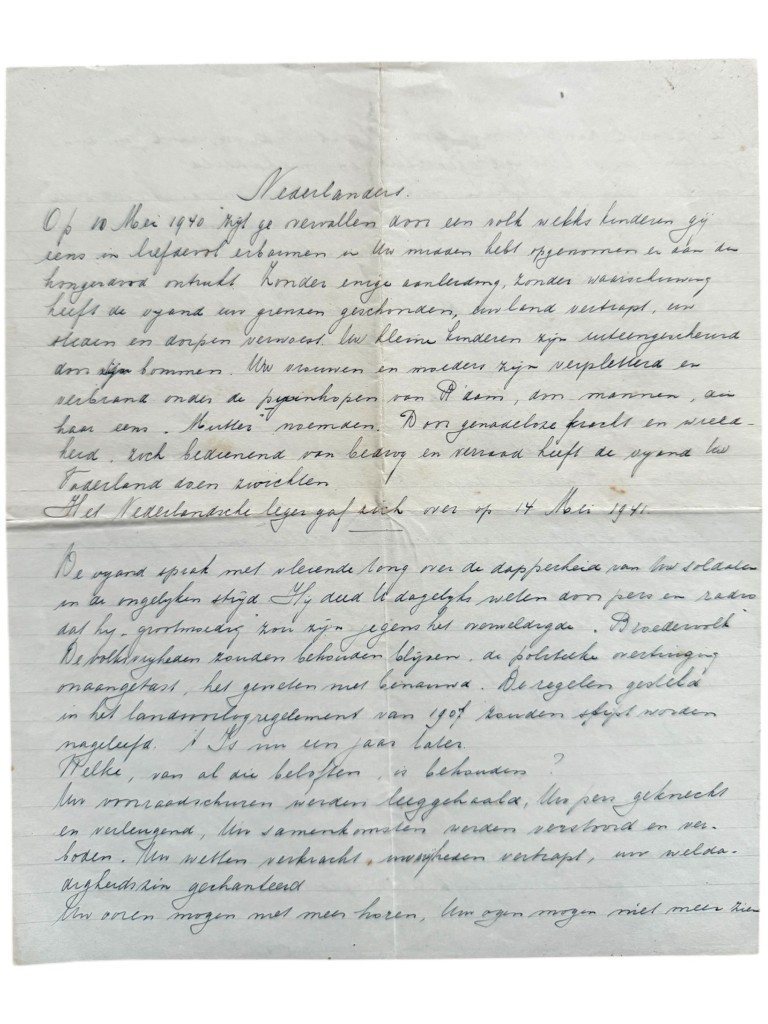 Nederlanders.
Op 10 Mei 1940 zijt ge vervallen door een volk welks kinderen gij
eens in liefdevol erbarmen in Uw midden hebt opgenomen en aan den
hongerdood ontrukt. Zonder enige aanleiding, zonder waarschuwing
heeft de vyand uw grenzen geschonden, uw land vertrapt, uw
steden en dorpen verwoest. Uw kleine kinderen zijn uiteengescheurd
door zijn bommen. Uw vrouwen en moeders zijn verpletterd en
verbrand onder de puinhopen van R'dam, door mannen, die
haar eens "Mutter" noemden. Door genadeloze kracht en wreed-
heid, zich bedienend van bedrog en verraad heeft de vyand Uw
Vaderland doen zwichten
Het Nederlandsche leger gaf zich over op 14 Mei 1941.
De vyand sprak met vleiende tong over de dapperheid van Uw soldaten
in de ongelyken stryd. Hy deed U dagelyks weten door pers en radio
dat hy "grootmoedig" zou zijn jegens het overweldigde "Broedervolk"
De volksvryheden zouden behouden blijven, de politieke overtuiging
onaangetast, het geweten niet benauwd. De regelen gesteld
in het landoorlogreglement van 1907 zouden stipt worden
nageleefd. 't Is nu een jaar later.
Welke, van al die beloften, is behouden?
Uw voorraadschuren werden leeggehaald, Uw pers geknecht
en verleugend, Uw samenkomsten werden verstoord en ver-
boden. Uw wetten verkracht, uw vryheden vertrapt, uw welda-
digheidszin gechanteerd
Uw ooren mogen niet meer horen, Uw ogen mogen niet meer zien